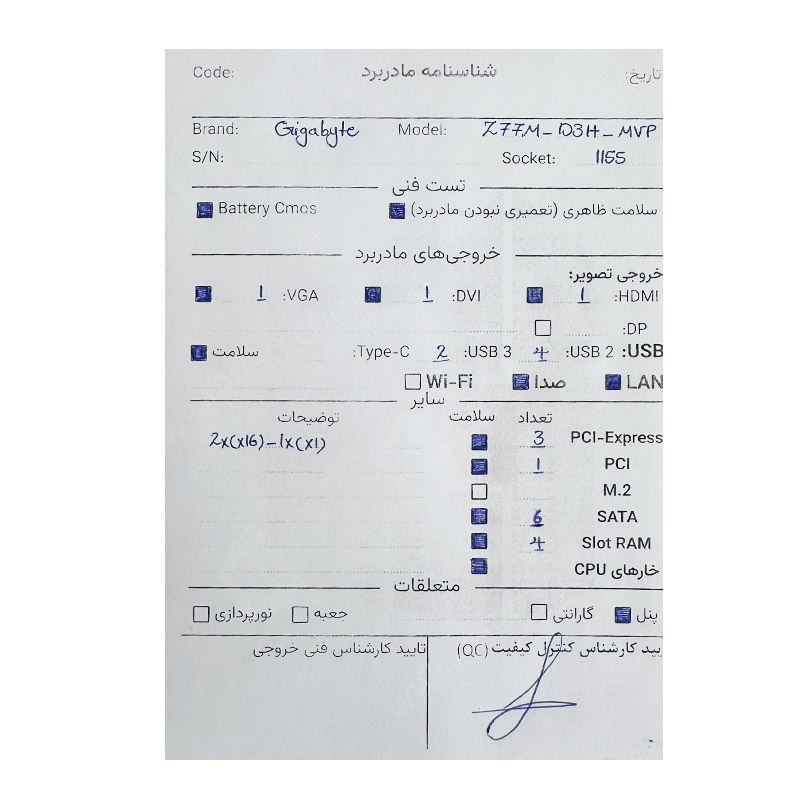 Code: شناسنامه مادربرد تاریخ:
Brand: Gigabyte Model: Z77M_D3H_MVP
S/N: Socket: 1155
تست فنی
سلامت ظاهری (تعمیری نبودن مادربرد) Battery Cmos
خروجی‌های مادربرد
خروجی تصویر:
HDMI: 1 DVI: 1 VGA: 1
DP:
USB: USB 2: 4 USB 3: 2 Type-C: سلامت
LAN صدا Wi-Fi
سایر
تعداد سلامت توضیحات
PCI-Express 3 2x(x16)-1x(x1)
PCI 1
M.2
SATA 6
Slot RAM 4
خارهای CPU
متعلقات
پنل گارانتی جعبه نورپردازی
یید کارشناس کنترل کیفیت (QC) تایید کارشناس فنی خروجی